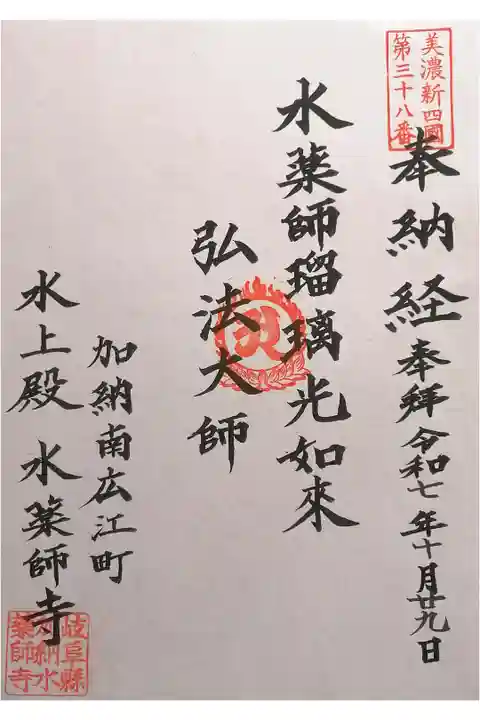 美濃新四國
第三十八番
奉納経 奉拜 令和七年十月廿九日
水薬師瑠璃光如來
弘法大師
加納南広江町
水上殿 水薬師寺
岐阜縣
加納水
薬師寺